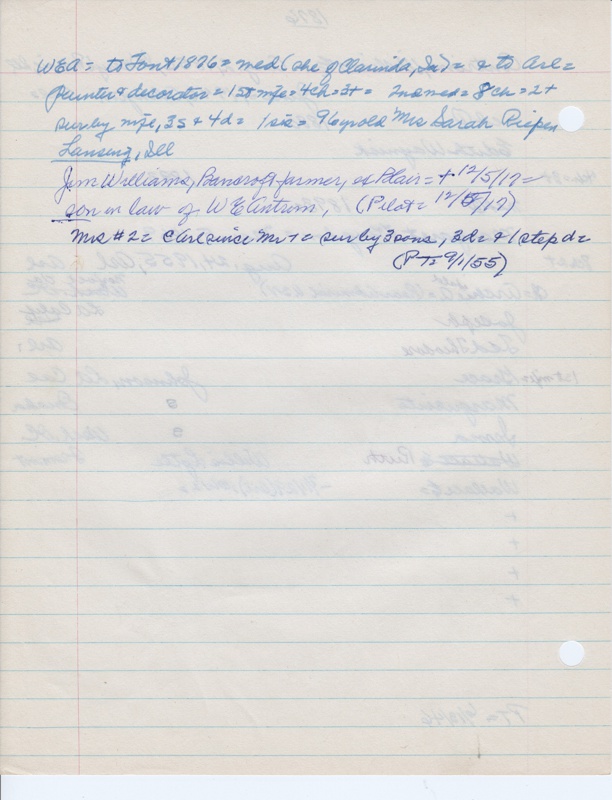 WEA = to Font 1876 = med (she of Clarinda, Ia) = & to Arl =
painter & decorator = 1st mfe = 4ch = 3+ = 2nd med = 8ch = 2+
surv by mfe, 3s & 4d = 1 sis = 96 yr old Mrs Sarah Riepen
Lansing, Ill
Jim Williams, Bancroft farmer, ex Blair = + 12/5/17 =
son in law of W E Antrim, (Pilot = 12/ /17)
Mrs #2 = C Arl since Mr + = surv by 3 sons, 3d = & 1 step d =
(PT = 9/1/55)